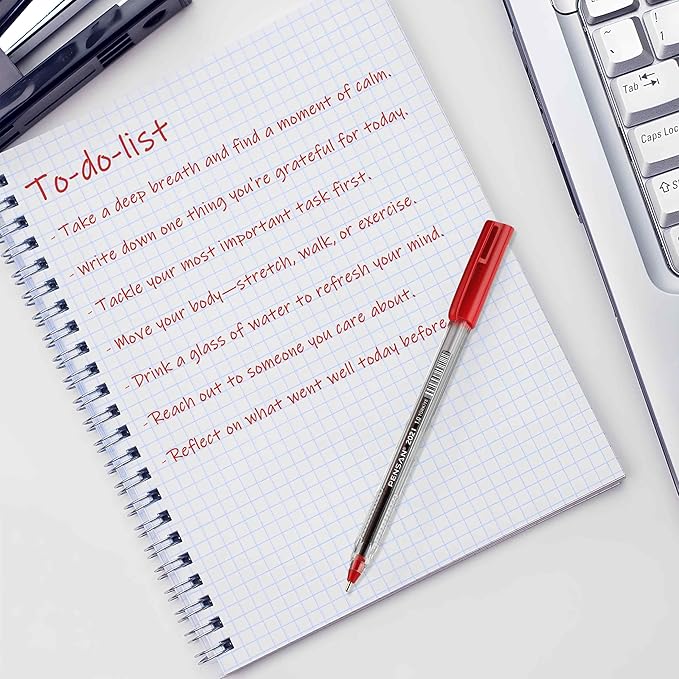 To-do-list
- Take a deep breath and find a moment of calm.
- Write down one thing you're grateful for today.
- Tackle your most important task first.
- Move your body—stretch, walk, or exercise.
- Drink a glass of water to refresh your mind.
- Reach out to someone you care about.
- Reflect on what went well today before
PENSAN 2021
Tab
Caps Lock
Shift